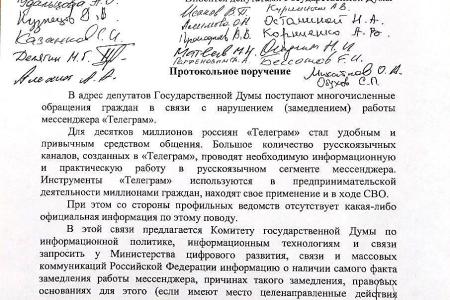 Кузнецов Д.В.
Казанков С.И.
Делягин М.Г.
Алехин А.А.
Исаков В.П.
Матвеев М.Н.
Куринный А.В.
Останина Н.А.
Корниенко А.В.
Осадчий Н.И.
Бессонов Е.И.
Михайлов О.А.
Обухов С.П.
Протокольное поручение
В адрес депутатов Государственной Думы поступают многочисленные
обращения граждан в связи с нарушением (замедлением) работы
мессенджера «Телеграм».
Для десятков миллионов россиян «Телеграм» стал удобным и
привычным средством общения. Большое количество русскоязычных
каналов, созданных в «Телеграм», проводят необходимую информационную
и практическую работу в русскоязычном сегменте мессенджера.
Инструменты «Телеграм» используются в предпринимательской
деятельности миллионами граждан, находят свое применение и в ходе СВО.
При этом со стороны профильных ведомств отсутствует какая-либо
официальная информация по этому поводу.
В этой связи предлагается Комитету государственной Думы по
информационной политике, информационным технологиям и связи
запросить у Министерства цифрового развития, связи и массовых
коммуникаций Российской Федерации информацию о наличии самого факта
замедления работы мессенджера, причинах такого замедления, правовых
основаниях для этого (если имеют место целенаправленные действия